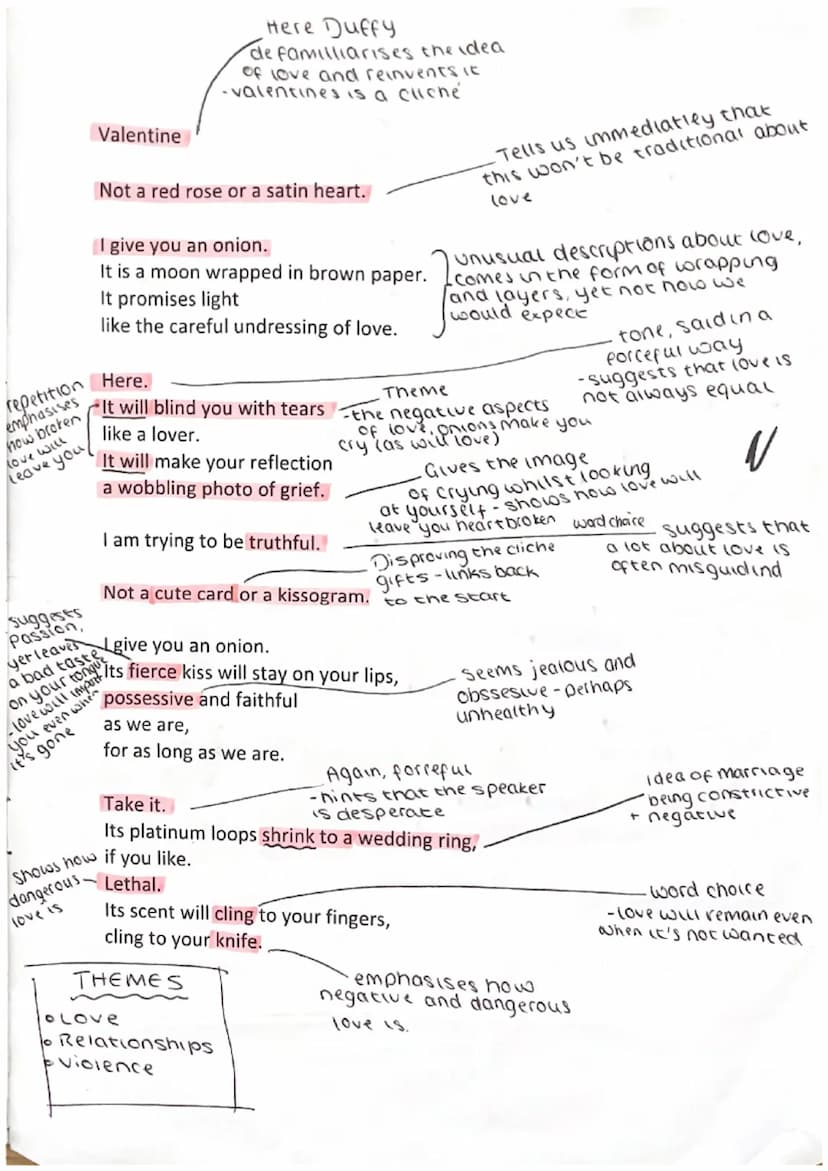 Here Duffy
defamilliarises the idea
of love and reinvents it
-valentines is a cliché
Valentine
Tells us immediatley that
this won't be traditional about
love
Not a red rose or a satin heart.
I give you an onion.
It is a moon wrapped in brown paper.
It promises light
like the careful undressing of love.
unusual descriptions about love,
comes in the form of wrapping
and layers, yet not how we
would expect
tone, said in a
forceful way
-suggests that love is
not always equal
Here.
repetition
emphasises
how broken
love will
leave you
It will blind you with tears
like a lover.
It will make your reflection
a wobbling photo of grief.
Theme
-the negative aspects
of love, onions make you
cry (as will love)
Gives the image
of crying whilst looking
at yourself - shows how love will
leave you heartbroken
I am trying to be truthful.
word choice
suggests that
a lot about love is
often misguidind
Disproving the cliche
gifts - links back
to the start
Not a cute card or a kissogram.
suggests
passion,
yet leaves
a bad taste
on your tongue
-love will impact
you even when
it's gone
I give you an onion.
Its fierce kiss will stay on your lips,
possessive and faithful
as we are,
for as long as we are.
seems jealous and
obssesive - perhaps
unhealthy
Again, forceful
-hints that the speaker
is desperate
Take it.
Its platinum loops shrink to a wedding ring,
if you like.
idea of marriage
being constrictive
+ negative
shows how
dangerous
love is
Lethal.
Its scent will cling to your fingers,
cling to your knife.
word choice
-love will remain even
when it's not wanted
emphasises how
negative and dangerous
love is.
THEMES
Love
Relationships
Violence